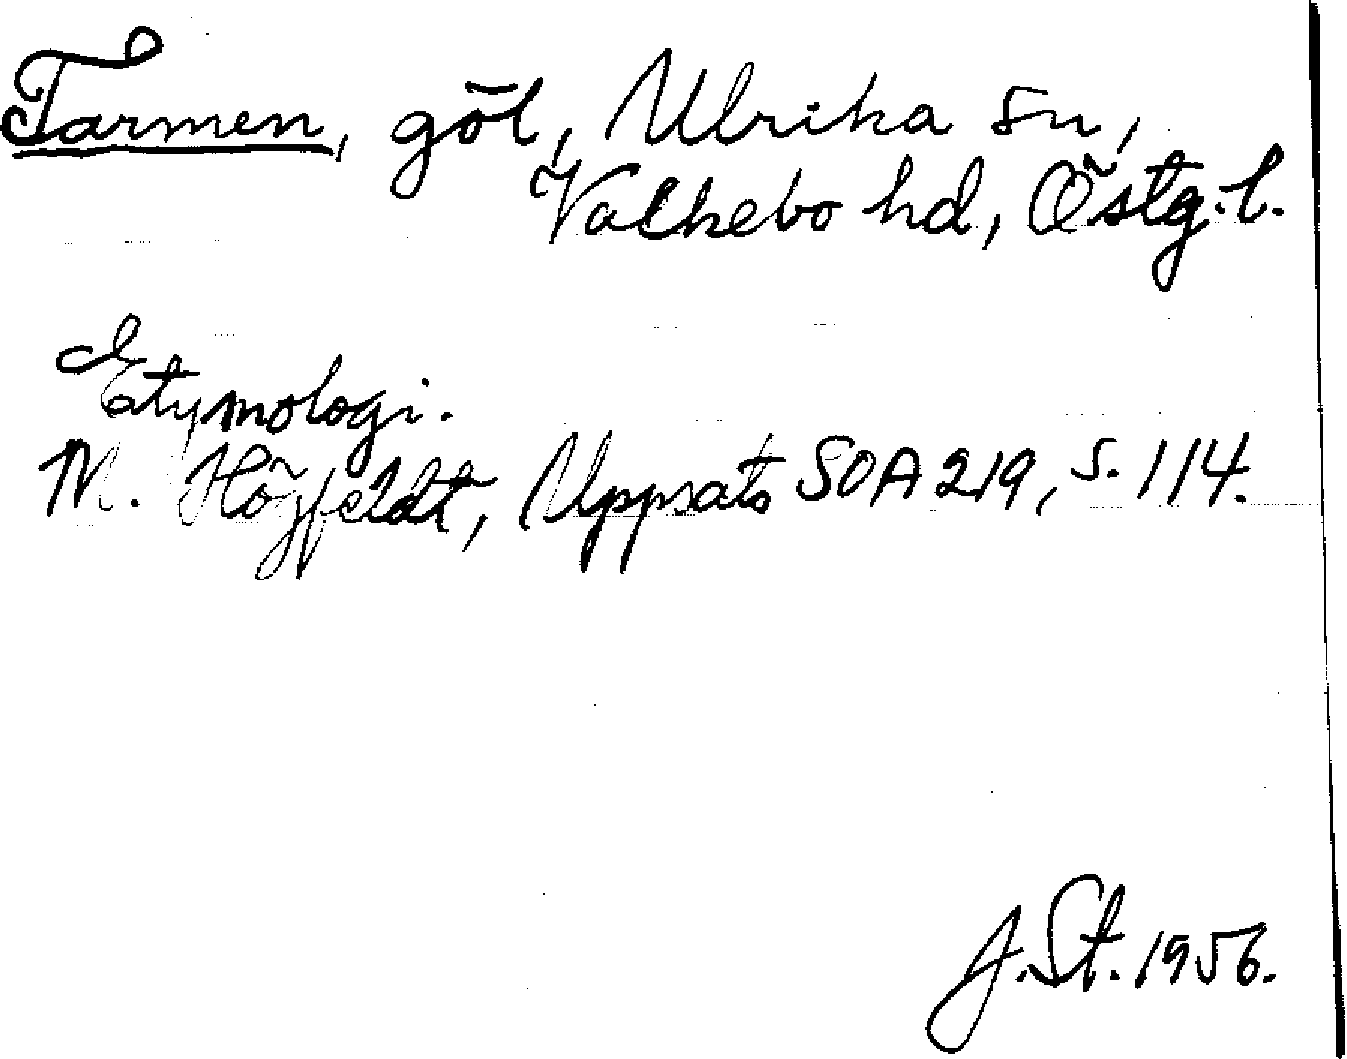 Tarmen, göl, Ulrika sn,
Valkebo hd, Östg.l.
Etymologi.
M. Höjfeldt, Uppsats SOA 219, s. 114.
J. St. 1956.